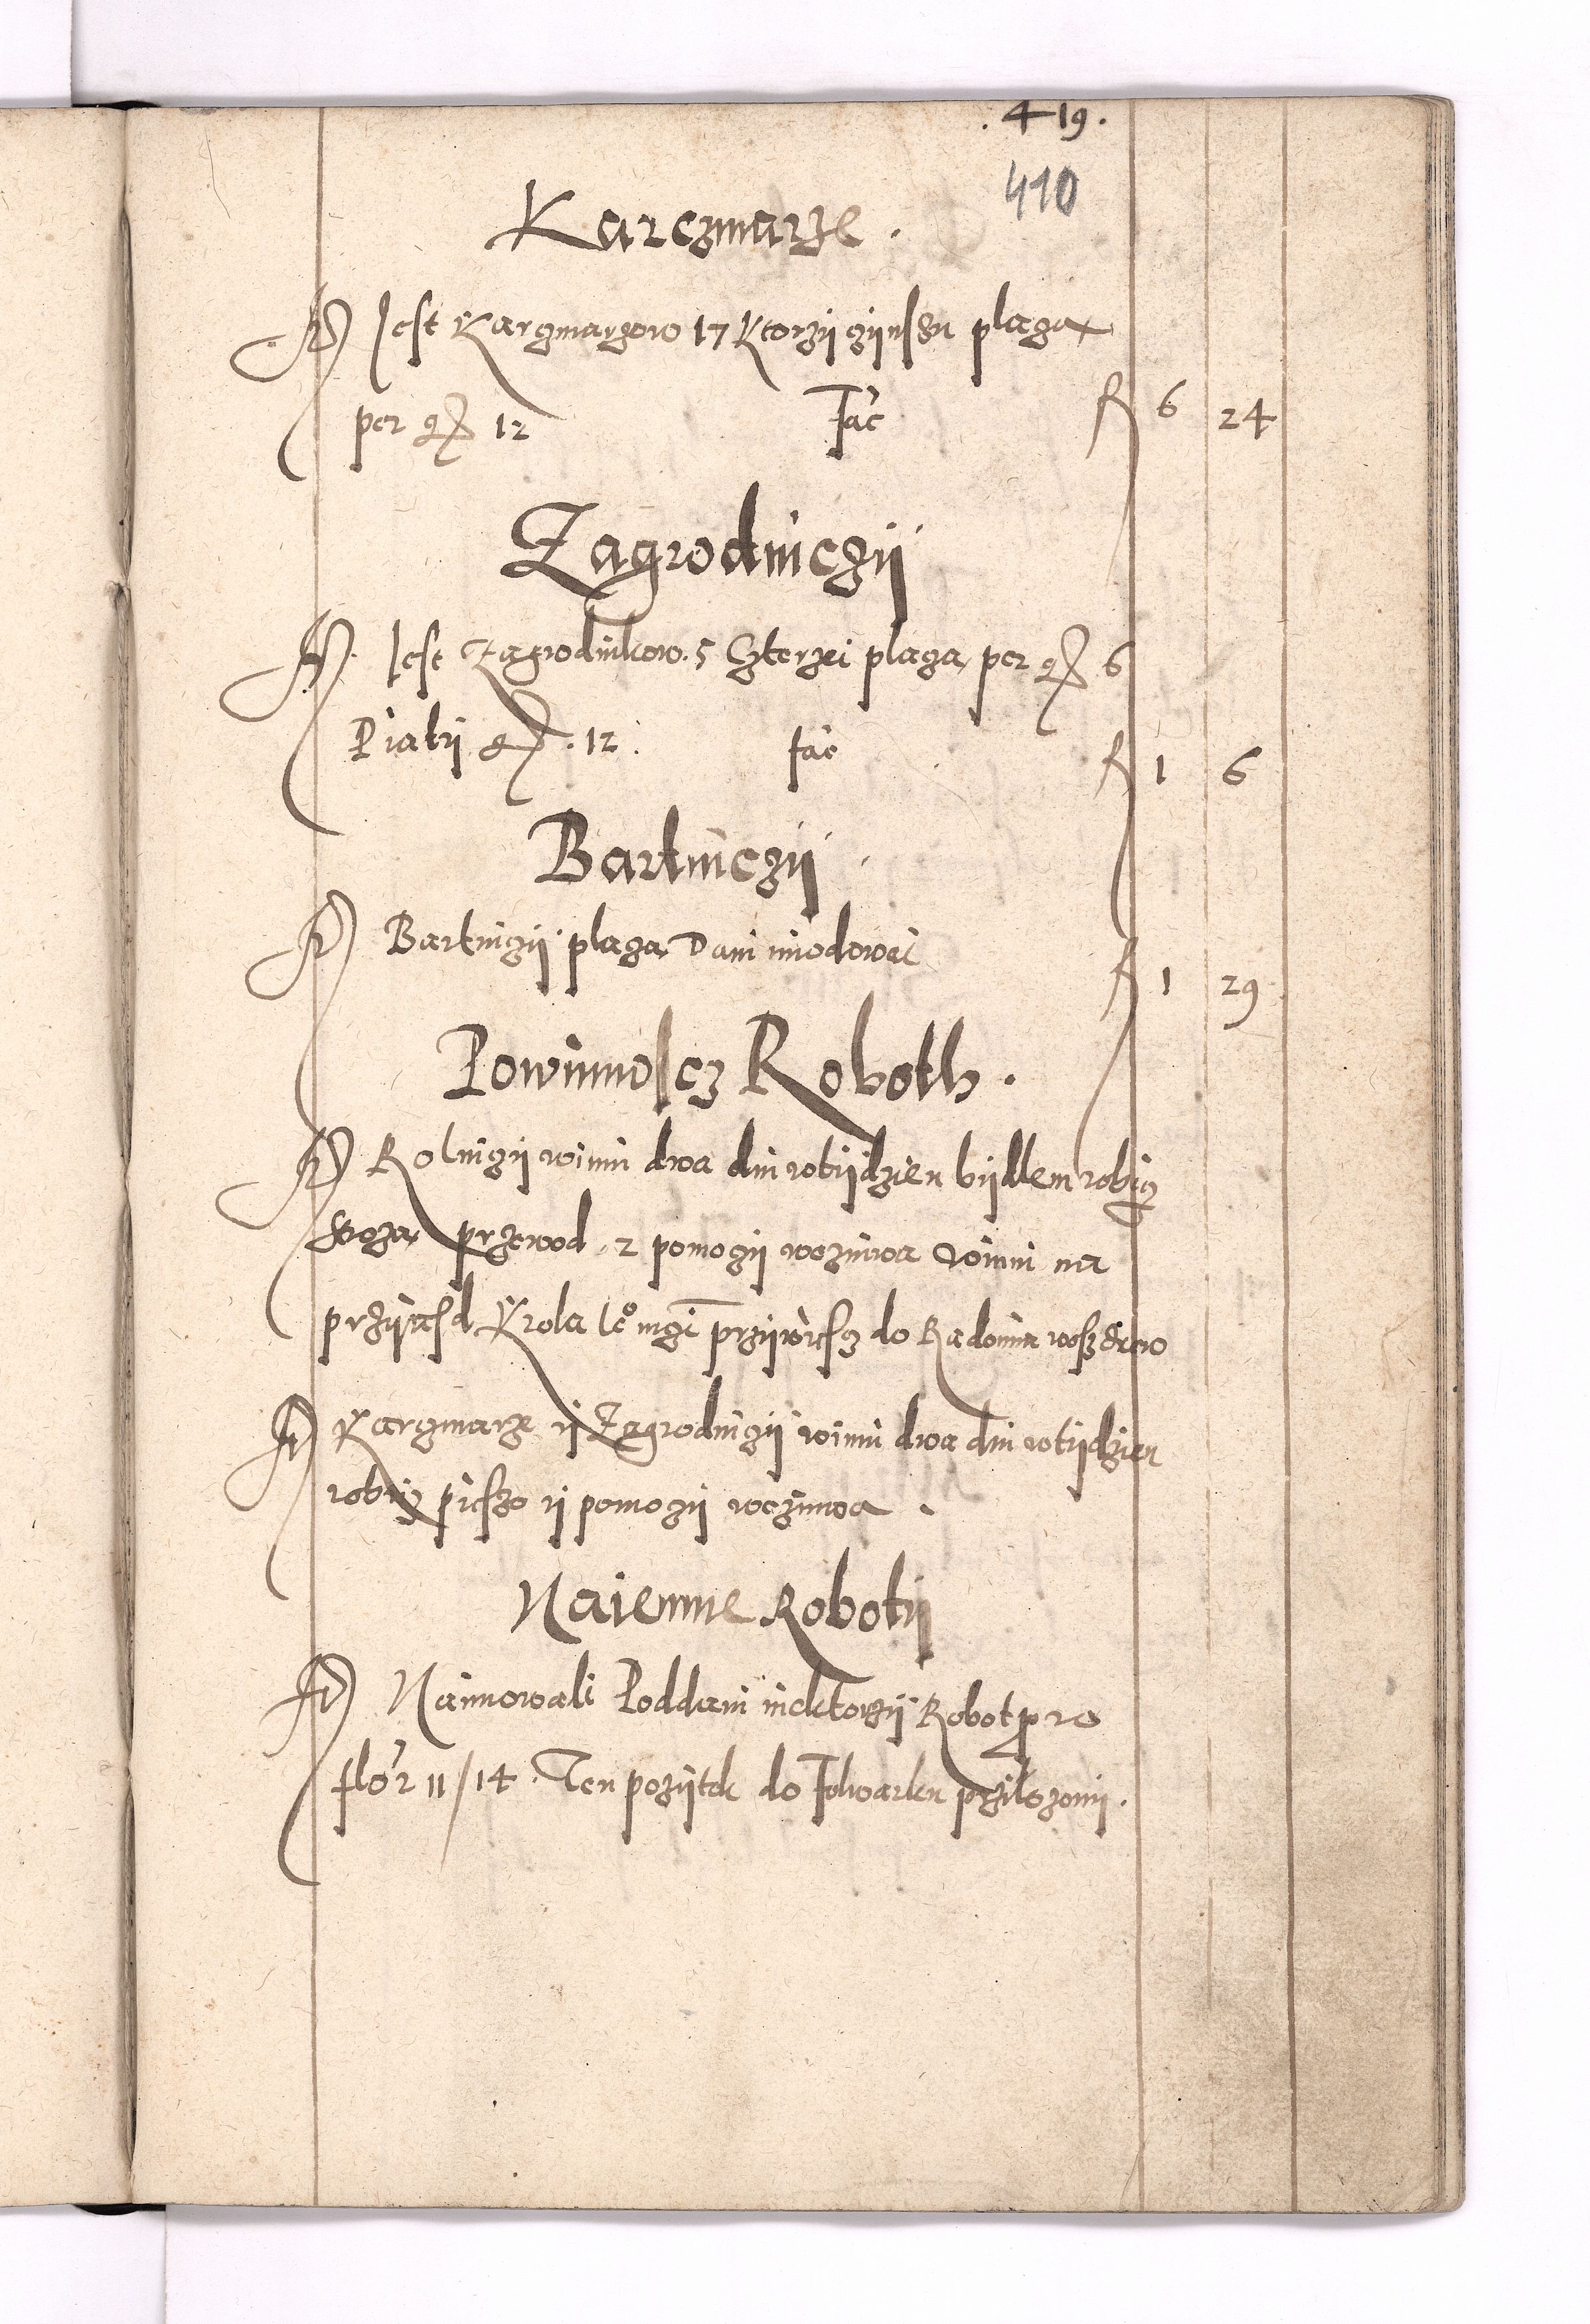 . 4 19 .
410
Karczmarze .
Jest Karczmarzow 17 Ktorzÿ czÿnszu placza
per gr 12 Fac fl 6 24
Zagrodniczÿ
Jest Zagrodnikow . 5 Czterzei placza per gr 6
Piatÿ gr . 12 . fac fl 1 6
Bartniczÿ
Bartniczÿ placza Dani miodowai fl 1 29
Powinnoscz Roboth .
Rolniczÿ winni dwa dni wtÿdzien bÿdlem robicz
przewod , z pomoczÿ wezniwa winni na
przÿiasd Krola Je° mci przÿwiescz do Radomia
Karczmarze ÿ Zagrodniczÿ winni dwa dni wtÿdzien
robicz pieszo ÿ pomoczÿ wezniwa .
Naiemne Robotÿ
Naimowali Poddani niektorzÿ Robot pro
flor 11 / 14 . Ten pozÿtek do Folwarku przilozonÿ .